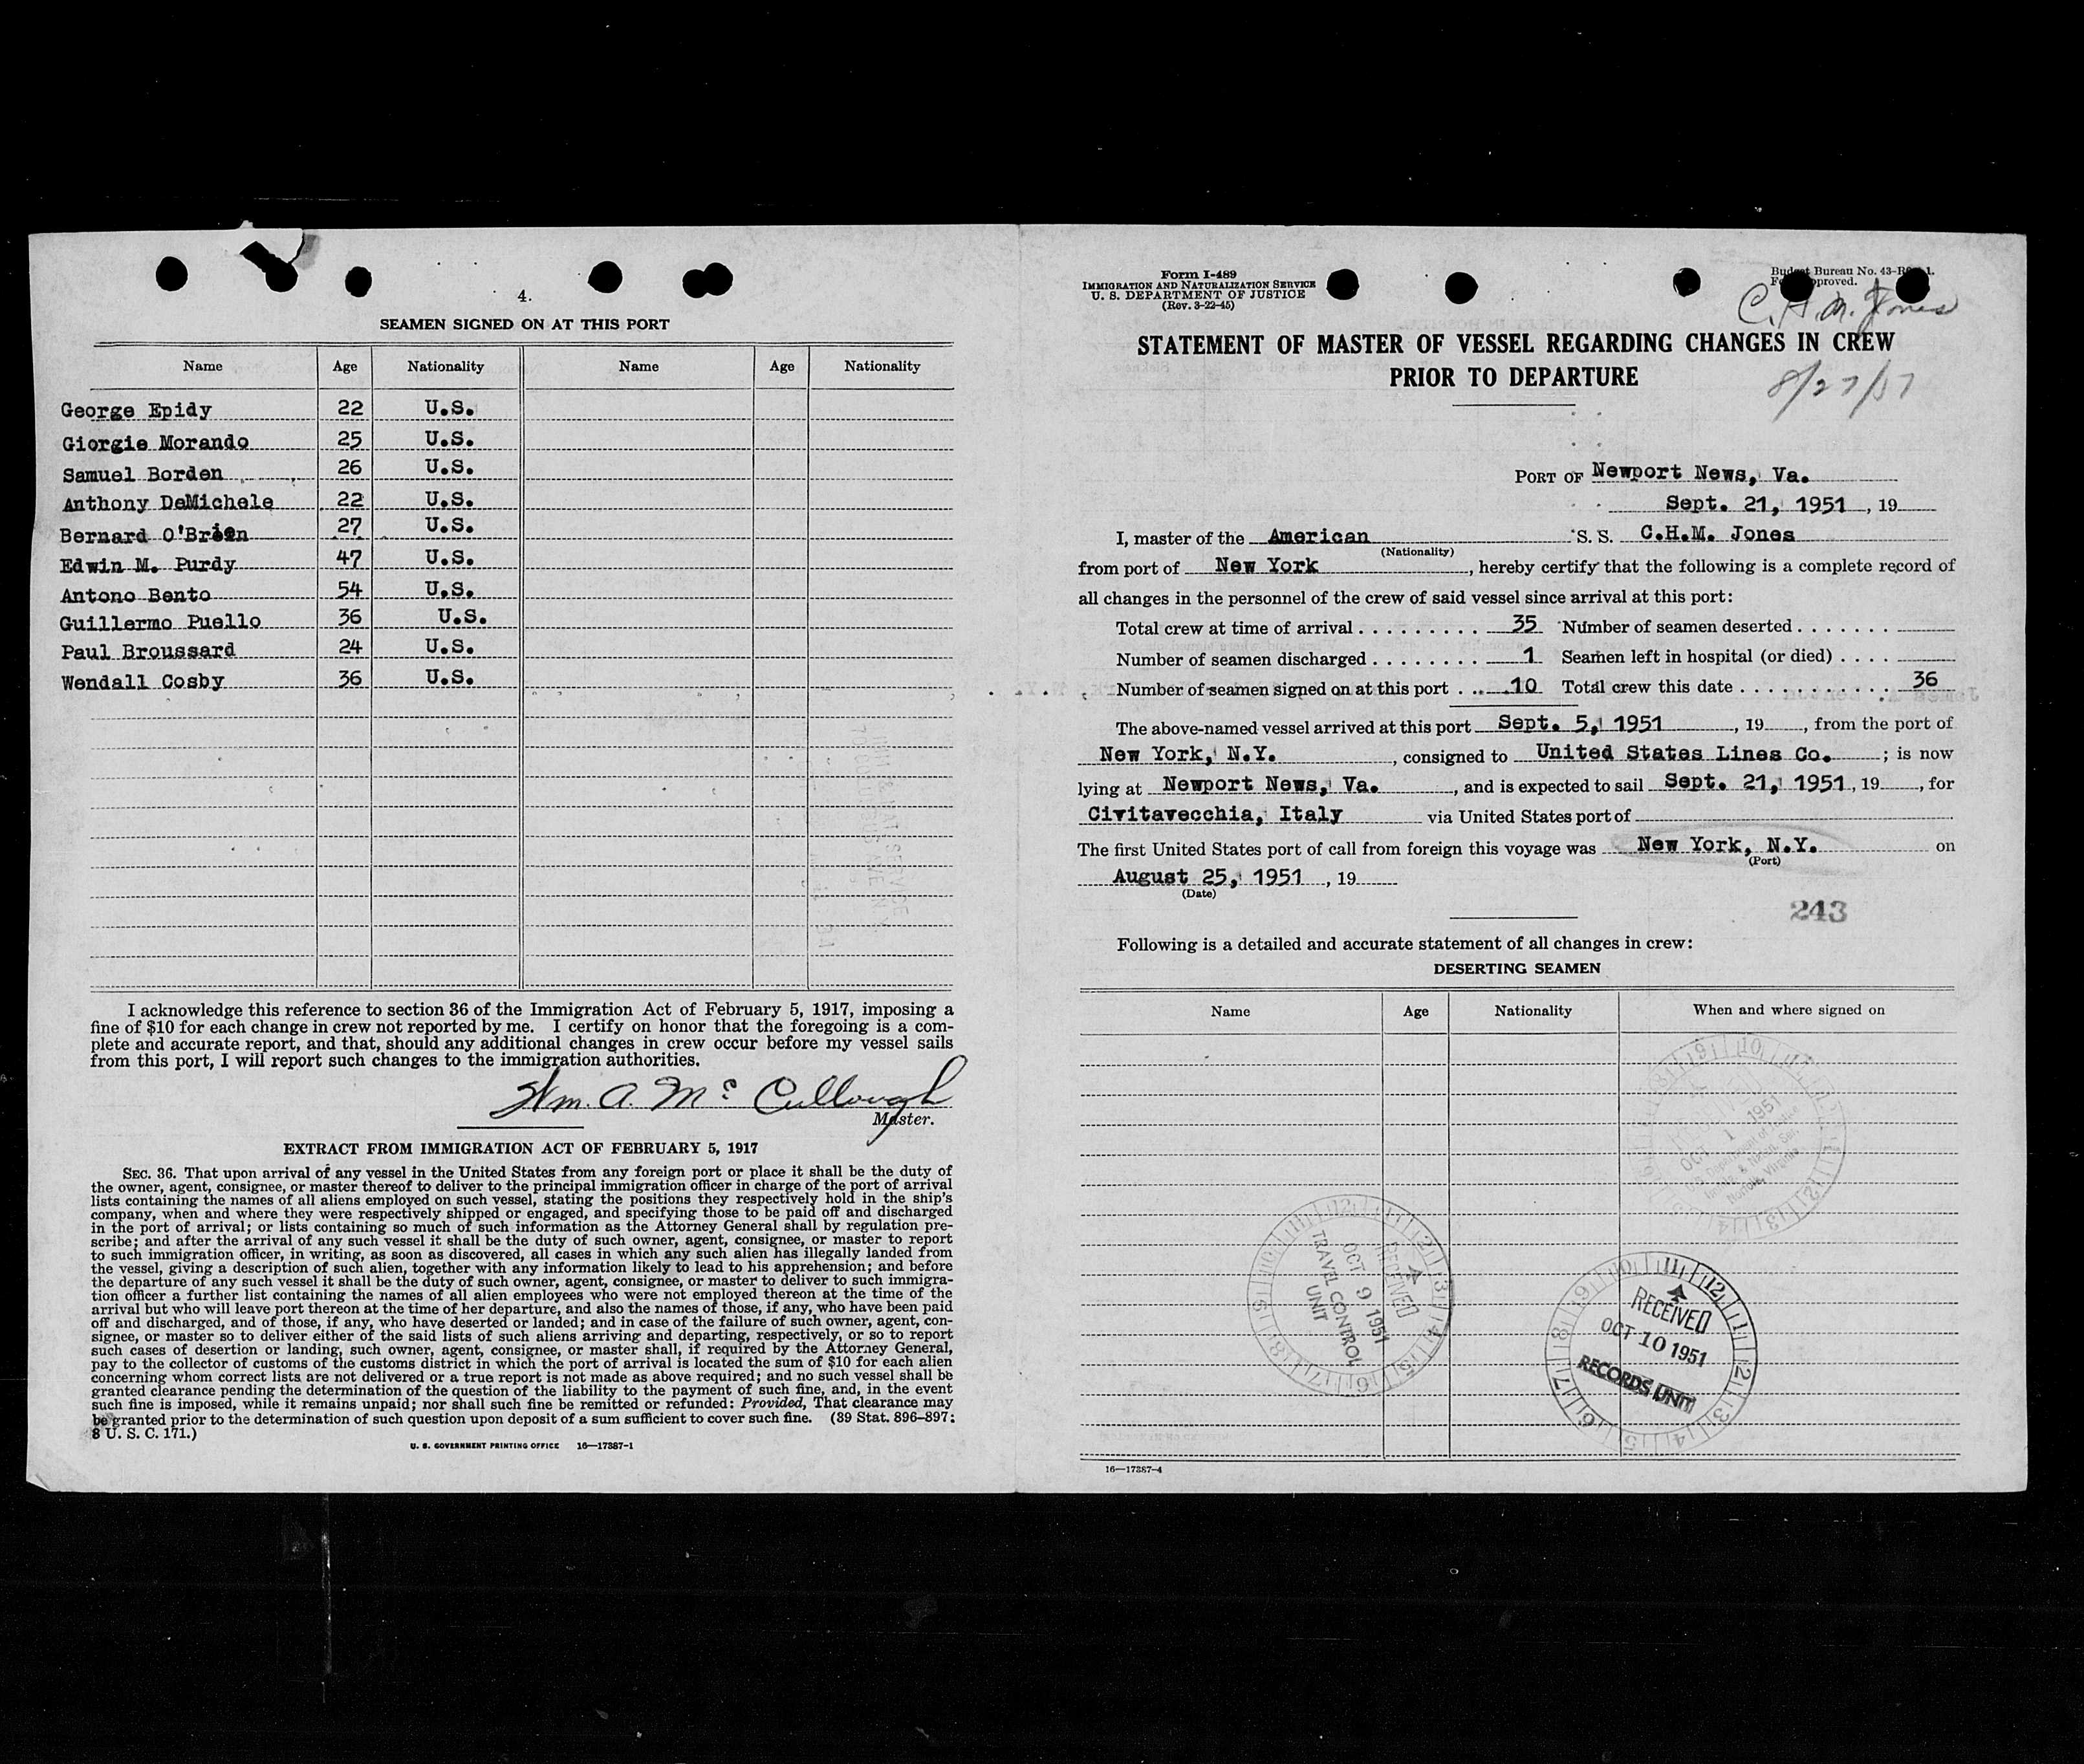 4.
SEAMEN SIGNED ON AT THIS PORT
Name Age Nationality Name Age Nationality
George Epidy 22 U.S.
Giorgie Morando 25 U.S.
Samuel Borden 26 U.S.
Anthony DeMichele 22 U.S.
Bernard O'Brien 27 U.S.
Edwin M. Purdy 47 U.S.
Antono Bento 54 U.S.
Guillermo Puello 36 U.S.
Paul Broussard 24 U.S.
Wendall Cosby 36 U.S.
I acknowledge this reference to section 36 of the Immigration Act of February 5, 1917, imposing a
fine of $10 for each change in crew not reported by me. I certify on honor that the foregoing is a com-
plete and accurate report, and that, should any additional changes in crew occur before my vessel sails
from this port, I will report such changes to the immigration authorities.
Wm. A. McCullough
Master.
EXTRACT FROM IMMIGRATION ACT OF FEBRUARY 5, 1917
SEC. 36. That upon arrival of any vessel in the United States from any foreign port or place it shall be the duty of
the owner, agent, consignee, or master thereof to deliver to the principal immigration officer in charge of the port of arrival
lists containing the names of all aliens employed on such vessel, stating the positions they respectively hold in the ship's
company, when and where they were respectively shipped or engaged, and specifying those to be paid off and discharged
in the port of arrival; or lists containing so much of such information as the Attorney General shall by regulation pre-
scribe; and after the arrival of any such vessel it shall be the duty of such owner, agent, consignee, or master to report
to such immigration officer, in writing, as soon as discovered, all cases in which any such alien has illegally landed from
the vessel, giving a description of such alien, together with any information likely to lead to his apprehension; and before
the departure of any such vessel it shall be the duty of such owner, agent, consignee, or master to deliver to such immigra-
tion officer a further list containing the names of all alien employees who were not employed thereon at the time of the
arrival but who will leave port thereon at the time of her departure, and also the names of those, if any, who have been paid
off and discharged, and of those, if any, who have deserted or landed; and in case of the failure of such owner, agent, con-
signee, or master so to deliver either of the said lists of such aliens arriving and departing, respectively, or so to report
such cases of desertion or landing, such owner, agent, consignee, or master shall, if required by the Attorney General,
pay to the collector of customs of the customs district in which the port of arrival is located the sum of $10 for each alien
concerning whom correct lists are not delivered or a true report is not made as above required; and no such vessel shall be
granted clearance pending the determination of the question of the liability to the payment of such fine, and, in the event
such fine is imposed, while it remains unpaid; nor shall such fine be remitted or refunded: Provided, That clearance may
be granted prior to the determination of such question upon deposit of a sum sufficient to cover such fine. (39 Stat. 896-897;
8 U. S. C. 171.)
U. S. GOVERNMENT PRINTING OFFICE 16—17387-1
Form I-489
IMMIGRATION AND NATURALIZATION SERVICE
U. S. DEPARTMENT OF JUSTICE
(Rev. 3-22-45)
Budget Bureau No. 43-
C. H. M. Jones
STATEMENT OF MASTER OF VESSEL REGARDING CHANGES IN CREW
PRIOR TO DEPARTURE
PORT OF Newport News, Va.
Sept. 21, 1951 , 19
I, master of the American S. S. C.H.M. Jones
(Nationality)
from port of New York , hereby certify that the following is a complete record of
all changes in the personnel of the crew of said vessel since arrival at this port:
Total crew at time of arrival . . . . . . . . . 35 Number of seamen deserted . . . . . . .
Number of seamen discharged . . . . . . . . 1 Seamen left in hospital (or died) . . . .
Number of seamen signed on at this port . . . 10 Total crew this date . . . . . . . . . . . 36
The above-named vessel arrived at this port Sept. 5, 1951 , 19 , from the port of
New York, N.Y. , consigned to United States Lines Co. ; is now
lying at Newport News, Va. , and is expected to sail Sept. 21, 1951 , 19 , for
Civitavecchia, Italy via United States port of
The first United States port of call from foreign this voyage was New York, N.Y. on
(Port)
August 25, 1951 , 19
(Date)
243
Following is a detailed and accurate statement of all changes in crew:
DESERTING SEAMEN
Name Age Nationality When and where signed on
OCT 1 1951
U.S. Department of Justice
Norfolk, Virginia
RECEIVED
OCT 9 1951
TRAVEL CONTROL
UNIT
RECEIVED
OCT 10 1951
RECORDS UNIT
16—17387-4